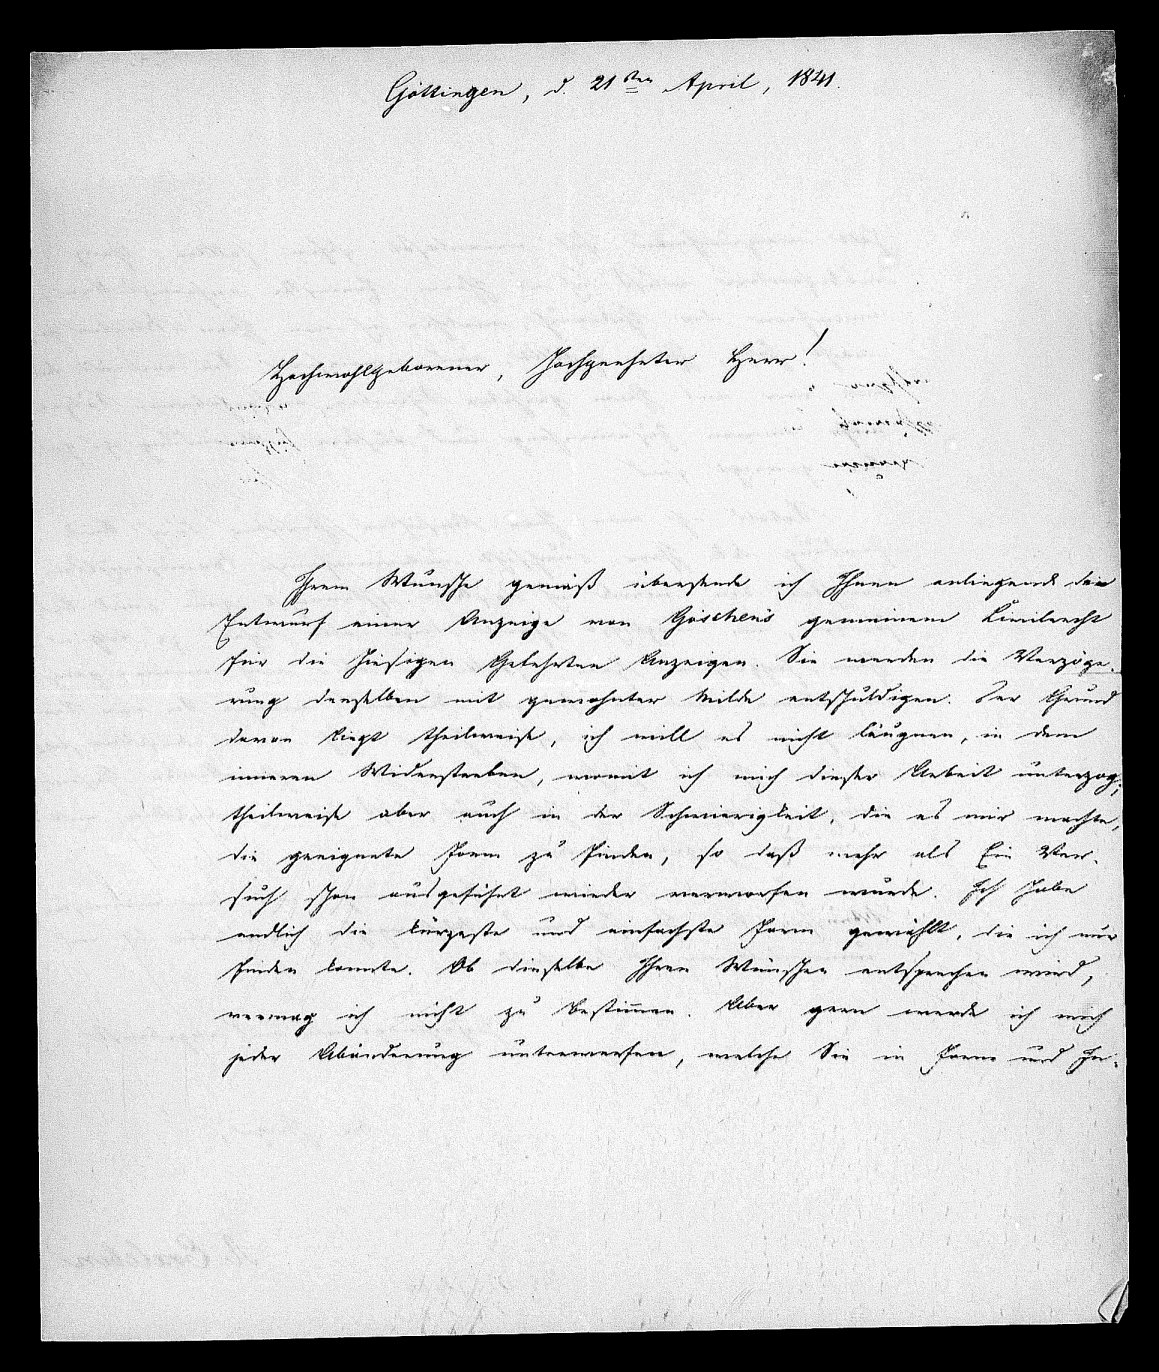 Göttingen, d. 21sten April, 1841.
Hochwohlgeborener, Hochgeehrter Herr!
Ihrem Wunsche gemäß übersende ich Ihnen anliegend den
Entwurf einer Anzeige von Göschen's gemeinem Civilrecht
für die hiesigen Gelehrten Anzeigen. Sie werden die Verzöge-
rung derselben mit gewohnter Milde entschuldigen. Der Grund
davon liegt theilweise, ich will es nicht läugnen, in dem
inneren Widerstreben, womit ich mich dieser Arbeit unterzog;
theilweise aber auch in der Schwierigkeit, die es mir machte,
die geeignete Form zu finden, so daß mehr als Ein Ver-
such schon ausgeführt wieder verworfen wurde. Ich habe
endlich die kürzeste und einfachste Form gewählt, die ich nur
finden konnte. Ob dieselbe Ihren Wünschen entsprechen wird,
vermag ich nicht zu bestimmen. Aber gern werde ich mich
jeder Abänderung unterwerfen, welche Sie in Form und In-